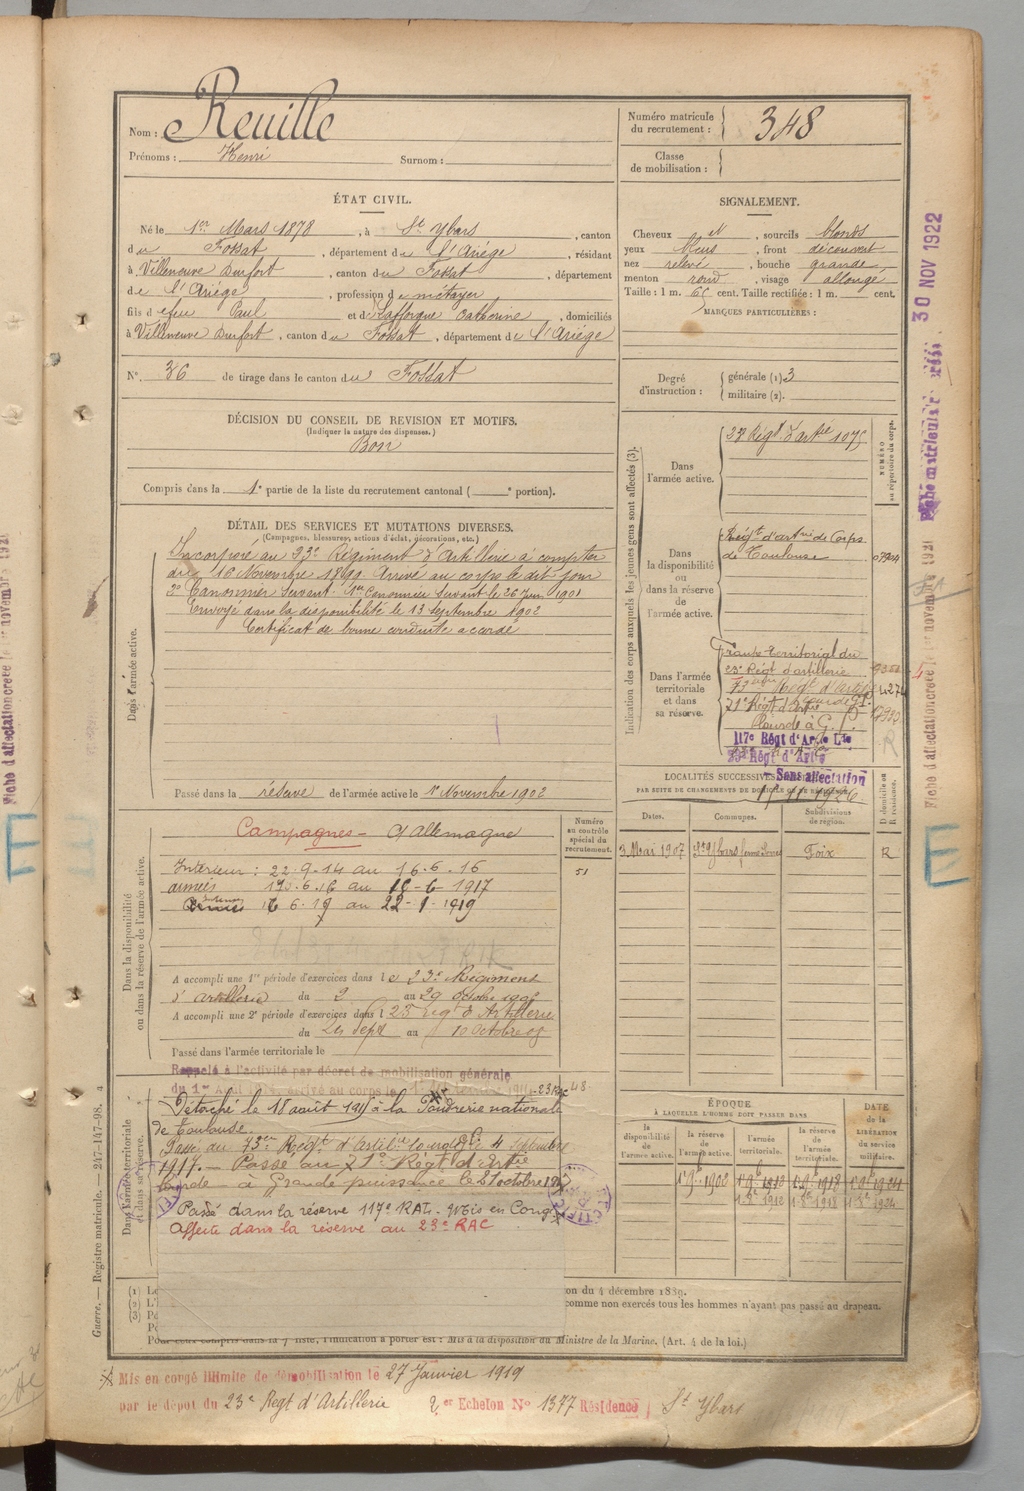 Nom : Reuille
Prénoms : Henri Surnom :
Numéro matricule du recrutement : 348
Classe de mobilisation :
ÉTAT CIVIL.
Né le 1er Mars 1878, à St Ybars, canton
du Fossat, département de l'Ariège, résidant
à Villeneuve Durfort, canton du Fossat, département
de l'Ariège, profession de métayer
fils de feu Paul et de Lafforgue Catherine, domiciliés
à Villeneuve Durfort, canton du Fossat, département de l'Ariège
N° 36 de tirage dans le canton du Fossat
SIGNALEMENT.
Cheveux et, sourcils blonds
yeux bleus, front découvert
nez relevé, bouche grande
menton rond, visage allongé
Taille : 1 m. 65 cent. Taille rectifiée : 1 m. cent.
MARQUES PARTICULIÈRES :
Degré d'instruction : générale (1) 3
militaire (2).
DÉCISION DU CONSEIL DE REVISION ET MOTIFS.
(Indiquer la nature des dispenses.)
Bon
Compris dans la 1e partie de la liste du recrutement cantonal ( e portion).
DÉTAIL DES SERVICES ET MUTATIONS DIVERSES.
(Campagnes, blessures, actions d'éclat, décorations, etc.)
Dans l'armée active.
Incorporé au 23e Régiment d'Artillerie à compter
du 16 Novembre 1899. Arrivé au corps le dit jour
2e Canonnier Servant. 1er Canonnier Servant le 26 Juin 1901
Envoyé dans la disponibilité le 13 septembre 1902
Certificat de bonne conduite accordé
Passé dans la réserve de l'armée active le 1er Novembre 1902
Indication des corps auxquels les jeunes gens sont affectés (3).
NUMÉRO au répertoire du corps.
Dans l'armée active.
23e Régt d'artie 1075
Dans la disponibilité ou dans la réserve de l'armée active.
Régt d'artrie de Corps
de Toulouse 07924
Dans l'armée territoriale et dans sa réserve.
territorial du
23e Régt d'artillerie
Régt d'Artie 4274
21e Régt d'Artie
Lourde à G. P.
117e Régt d'Artie Lde
23e Régt d'Artie
Sans affectation
LOCALITÉS SUCCESSIVES
PAR SUITE DE CHANGEMENTS DE DOMICILE OU DE RÉSIDENCE.
D domicile ou R résidence.
Dates. Communes. Subdivisions de région.
3 Mai 1907 St Ybars Foix R
Dans la disponibilité ou dans la réserve de l'armée active.
Numéro au contrôle spécial du recrutement.
51
Campagnes - c/ Allemagne
Intérieur : 22.9.14 au 16.6.16
armées 16.6.16 au 16-6-1917
Intérieur 16.6.17 au 22-1-1919
A accompli une 1re période d'exercices dans le 23e Régiment
d'artillerie du 2 au 29 Octobre 1905
A accompli une 2e période d'exercices dans le 23 Régt d'Artillerie
du 24 Sept au 10 Octobre 08
Passé dans l'armée territoriale le
Rappelé à l'activité par décret de mobilisation générale
du 1er Août 1914, arrivé au corps le
48
Dans l'armée territoriale et dans sa réserve.
Détaché le 18 août 1915 à la Poudrerie nationale
de Toulouse.
Passé au 73ème Régt d'Artillerie lourde le 4 Septembre
1917. - Passé au 21e Régt d'Artie
Lourde - à Grande puissance le 21 octobre 1917
Passé dans la réserve 117e RAL. Mis en Congé
Affecté dans la réserve au 23e RAC
ÉPOQUE
À LAQUELLE L'HOMME DOIT PASSER DANS
la disponibilité de l'armée active.
la réserve de l'armée active.
l'armée territoriale.
la réserve de l'armée territoriale.
DATE de la LIBÉRATION du service militaire.
1 9bre 1902 1 9bre 1912 1 9bre 1918 1 9bre 1924
1-8bre 1912 1-8bre 1918 1-8bre 1924
(1) Le
(2) L'i
(3) Pe
on du 4 décembre 1889.
comme non exercés tous les hommes n'ayant pas passé au drapeau.
Pour ceux compris dans la 7e liste, l'indication à porter est : Mis à la disposition du Ministre de la Marine. (Art. 4 de la loi.)
Mis en congé illimité de démobilisation le 27 Janvier 1919
par le dépôt du 23e Regt d'Artillerie 2er Echelon N° 1377 Résidence St Ybars
Guerre. — Registre matricule. — 247-147-98.
Fiche matricule 30 NOV 1922
Fiche d'affectation créée le 1er novembre 1921
E
E